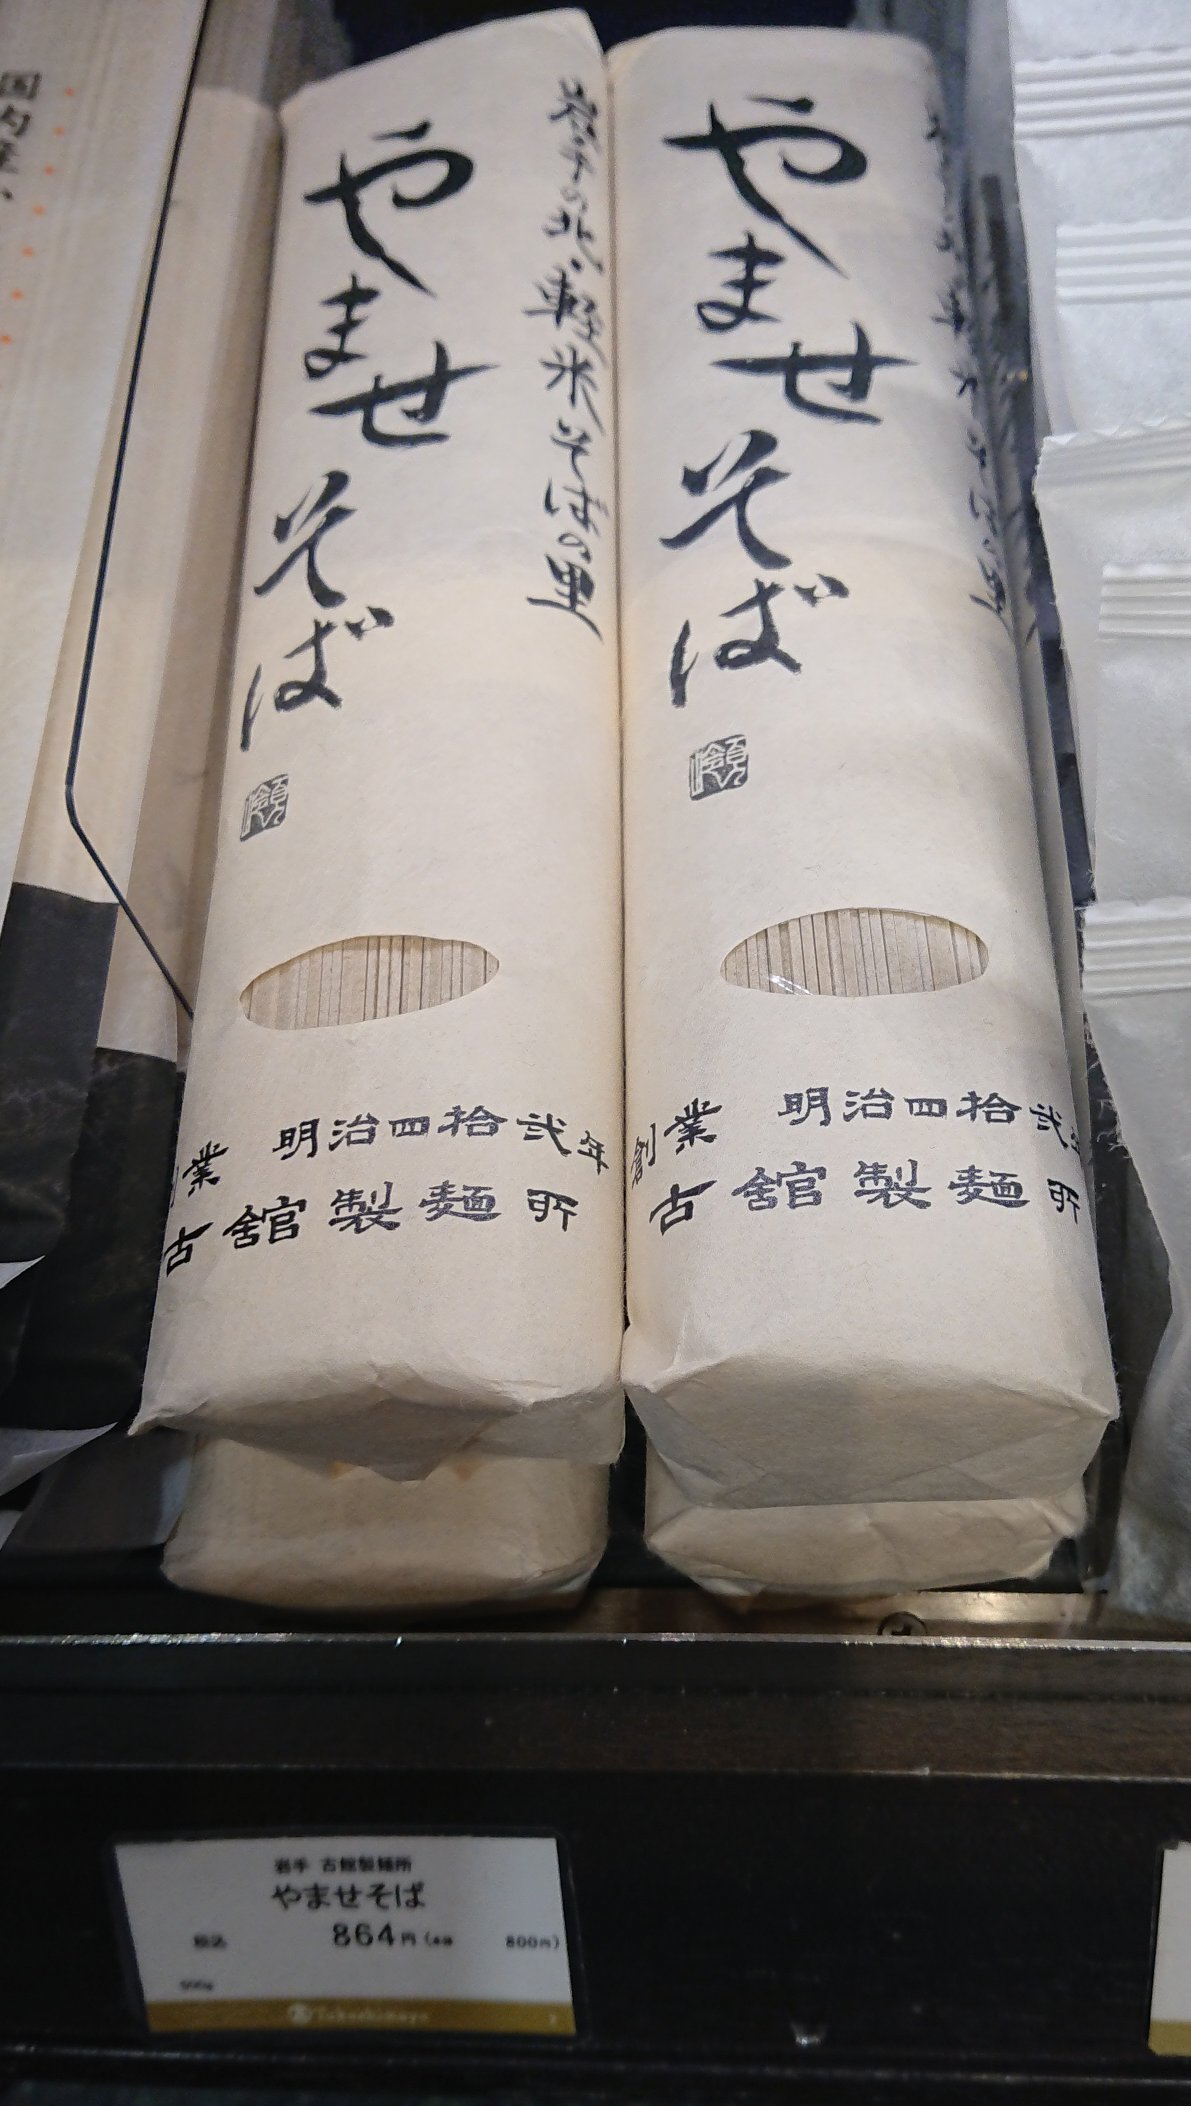 国内産
やませそば
岩手の北、軽米そばの里
創業 明治四拾弐年
古舘製麺所
やませそば
創業 明治四拾弐年
古舘製麺所
岩手 古舘製麺所
やませそば
税込 864円(本体 800円)
500g
Takashimaya